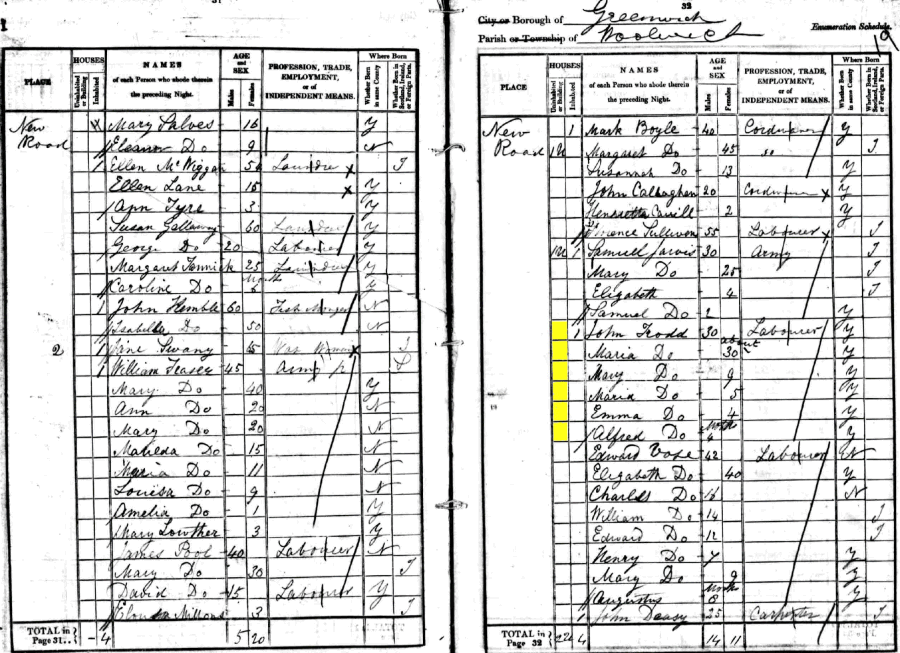 32
City or Borough of Greenwich
Parish or Township of Woolwich
Enumeration Schedule.
19
PLACE
HOUSES
Uninhabited or Building
Inhabited
NAMES
of each Person who abode therein the preceding Night.
AGE and SEX
Males
Females
PROFESSION, TRADE, EMPLOYMENT, or of INDEPENDENT MEANS.
Where Born
Whether Born in same County
Whether Born in Scotland, Ireland, or Foreign Parts.
New Road
Mary 16 Y
Eleanor Do 9 N
1 Ellen McWiggan I
Ellen Lane 15 Y
Ann Tyre 3 Y
Susan Galloway 60 Y
George Do 20 Labourer Y
Margaret 25 Y
Caroline Do Month 6 Y
1 John Hemble 60 N
Isabella Do 50 N
2 1 Jane Swany I
1 William Teasey 45 Army P
Mary Do 40 Y
Ann Do 20 N
Mary Do 20 N
Matilda Do 15 N
Maria Do 11 N
Louisa Do 9 N
Amelia Do 1 Y
Mary Lowther 3 Y
James Pool 40 Labourer N
Mary Do 30 I
David Do 15 Labourer Y
Millons 3 I
TOTAL in Page 31.. 4 5 20
PLACE
HOUSES
Uninhabited or Building
Inhabited
NAMES
of each Person who abode therein the preceding Night.
AGE and SEX
Males
Females
PROFESSION, TRADE, EMPLOYMENT, or of INDEPENDENT MEANS.
Where Born
Whether Born in same County
Whether Born in Scotland, Ireland, or Foreign Parts.
New Road
1 Mark Boyle 40 Y
1U Margaret Do 45 I
Susannah Do 13 Y
John Callaghan 20 Y
Henrietta 2 Y
Florence Sullivan 55 Labourer I
1U 1 Samuell Jarvis 30 Army I
Mary Do 25 I
Elizabeth 4 I
Samuel Do 2 Y
1 John Trodd 30 Labourer Y
Maria Do about 30 Y
Mary Do 9 Y
Maria Do 5 Y
Emma Do 4 Y
Alfred Do Months 4 Y
Edward Vose 42 Labourer N
Elizabeth Do 40 Y
Charles Do 16 N
William Do 14 I
Edward Do 12 I
Henry Do 7 Y
Mary Do 9 Y
Augustus Months 8 Y
1 John Deasy 25 Carpenter I
TOTAL in Page 32 4 14 11